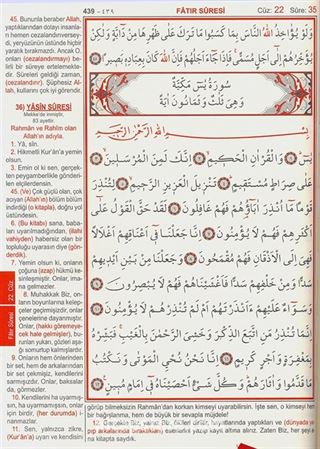 439 - ٤٣٩ FÂTIR SÛRESİ Cüz: 22 Sûre: 35
45. Bununla beraber Allah,
yaptıklarından dolayı insanla-
rı hemen cezalandırıverse-
di, yeryüzünün üstünde hiçbir
yaratık bırakmazdı. Ancak O,
onları (cezalandırmayı) be-
lirli bir süreye ertelemekte-
dir. Süreleri geldiği zaman,
(cezalandırır). Şüphesiz Al-
lah, kullarını çok iyi görendir.
36) YÂSİN SÛRESİ
Mekke'de inmiştir,
83 ayettir.
Rahmân ve Rahîm olan
Allah'ın adıyla.
1. Yâ, sîn.
2. Hikmetli Kur'ân'a yemin
olsun.
3. Emin ol ki sen, gerçek-
ten peygamberlikle gönderi-
len elçilerdensin.
45. (Ve) Çok güçlü olan, çok
acıyan (Allah'ın) bölüm bölüm
indirdiği (o kitapla), doğru yol
üstündesin.
6. (Bu kitabı) sana, baba-
ları uyarılmadığından, (ilahi
vahiyden) habersiz olan bir
topluluğu uyarasın diye (gön-
derdik).
7. Yemin olsun ki, onların
çoğuna (azap) hükmü ke-
sinleşmiştir. Onlar, ima-
na gelmezler.
8. Muhakkak Biz, on-
ların boyunlarına kelep-
çeler geçirmişizdir, onlar
çenelerine dayanmıştır.
Onlar, (hakkı göremeye-
cek hale gelmişler), bu-
runları yukarı, gözleri aşa-
ğı somurtup kalmışlardır.
9. Onların hem önlerinden
bir set, hem de arkalarından
bir set çekmişiz, kendilerini
sarmışızdır. Onlar, baksalar
da, görmezler.
10. Kendilerini ha uyarmış-
sın, ha uyarmamışsın, onlar
için birdir, (her durumda) i-
nanmazlar.
11. Sen, yalnızca zikre,
(Kur'ân'a) uyan ve kendisini
Fâtır Sûresi 22. Cüz
وَلَوْ يُؤَاخِذُ اللّٰهُ النَّاسَ بِمَا كَسَبُوا مَا تَرَكَ عَلٰى ظَهْرِهَا مِنْ دَٓابَّةٍ وَلٰكِنْ
يُؤَخِّرُهُمْ اِلٰٓى اَجَلٍ مُسَمًّى فَاِذَا جَٓاءَ اَجَلُهُمْ فَاِنَّ اللّٰهَ كَانَ بِعِبَادِه۪ بَص۪يرًا
سُورَةُ يٰسٓ مَكِّيَّةٌ
وَهِيَ ثَلٰثٌ وَثَمَانُونَ اٰيَةً
بِسْمِ اللّٰهِ الرَّحْمٰنِ الرَّح۪يمِ
يٰسٓ وَالْقُرْاٰنِ الْحَك۪يمِ اِنَّكَ لَمِنَ الْمُرْسَل۪ينَ
عَلٰى صِرَاطٍ مُسْتَق۪يمٍ تَنْز۪يلَ الْعَز۪يزِ الرَّح۪يمِ لِتُنْذِرَ
قَوْمًا مَٓا اُنْذِرَ اٰبَٓاؤُهُمْ فَهُمْ غَافِلُونَ لَقَدْ حَقَّ الْقَوْلُ عَلٰٓى
اَكْثَرِهِمْ فَهُمْ لَا يُؤْمِنُونَ اِنَّا جَعَلْنَا ف۪ٓي اَعْنَاقِهِمْ اَغْلَالًا
فَهِيَ اِلَى الْاَذْقَانِ فَهُمْ مُقْمَحُونَ وَجَعَلْنَا مِنْ بَيْنِ اَيْد۪يهِمْ
سَدًّا وَمِنْ خَلْفِهِمْ سَدًّا فَاَغْشَيْنَاهُمْ فَهُمْ لَا يُبْصِرُونَ
وَسَوَٓاءٌ عَلَيْهِمْ ءَاَنْذَرْتَهُمْ اَمْ لَمْ تُنْذِرْهُمْ لَا يُؤْمِنُونَ اِنَّمَا
تُنْذِرُ مَنِ اتَّبَعَ الذِّكْرَ وَخَشِيَ الرَّحْمٰنَ بِالْغَيْبِ فَبَشِّرْهُ
بِمَغْفِرَةٍ وَاَجْرٍ كَر۪يمٍ اِنَّا نَحْنُ نُحْيِ الْمَوْتٰى وَنَكْتُبُ
مَا قَدَّمُوا وَاٰثَارَهُمْ وَكُلَّ شَيْءٍ اَحْصَيْنَاهُ ف۪ٓي اِمَامٍ مُب۪ينٍ
görüp bilmeksizin Rahmân'dan korkan kimseyi uyarabilirsin. İşte sen, o kimseyi hem
bir bağışlanma, hem de büyük bir sevapla müjdele!
12. Gerçekten Biz, yalnız Biz, ölüleri diriltir, hayatlarında yaptıkları ve (dünyada ya-
pıp arkalarında bıraktıkları) eserlerini yazıp kayıt altına alırız. Zaten Biz, her şeyi
na kitapta saydık.